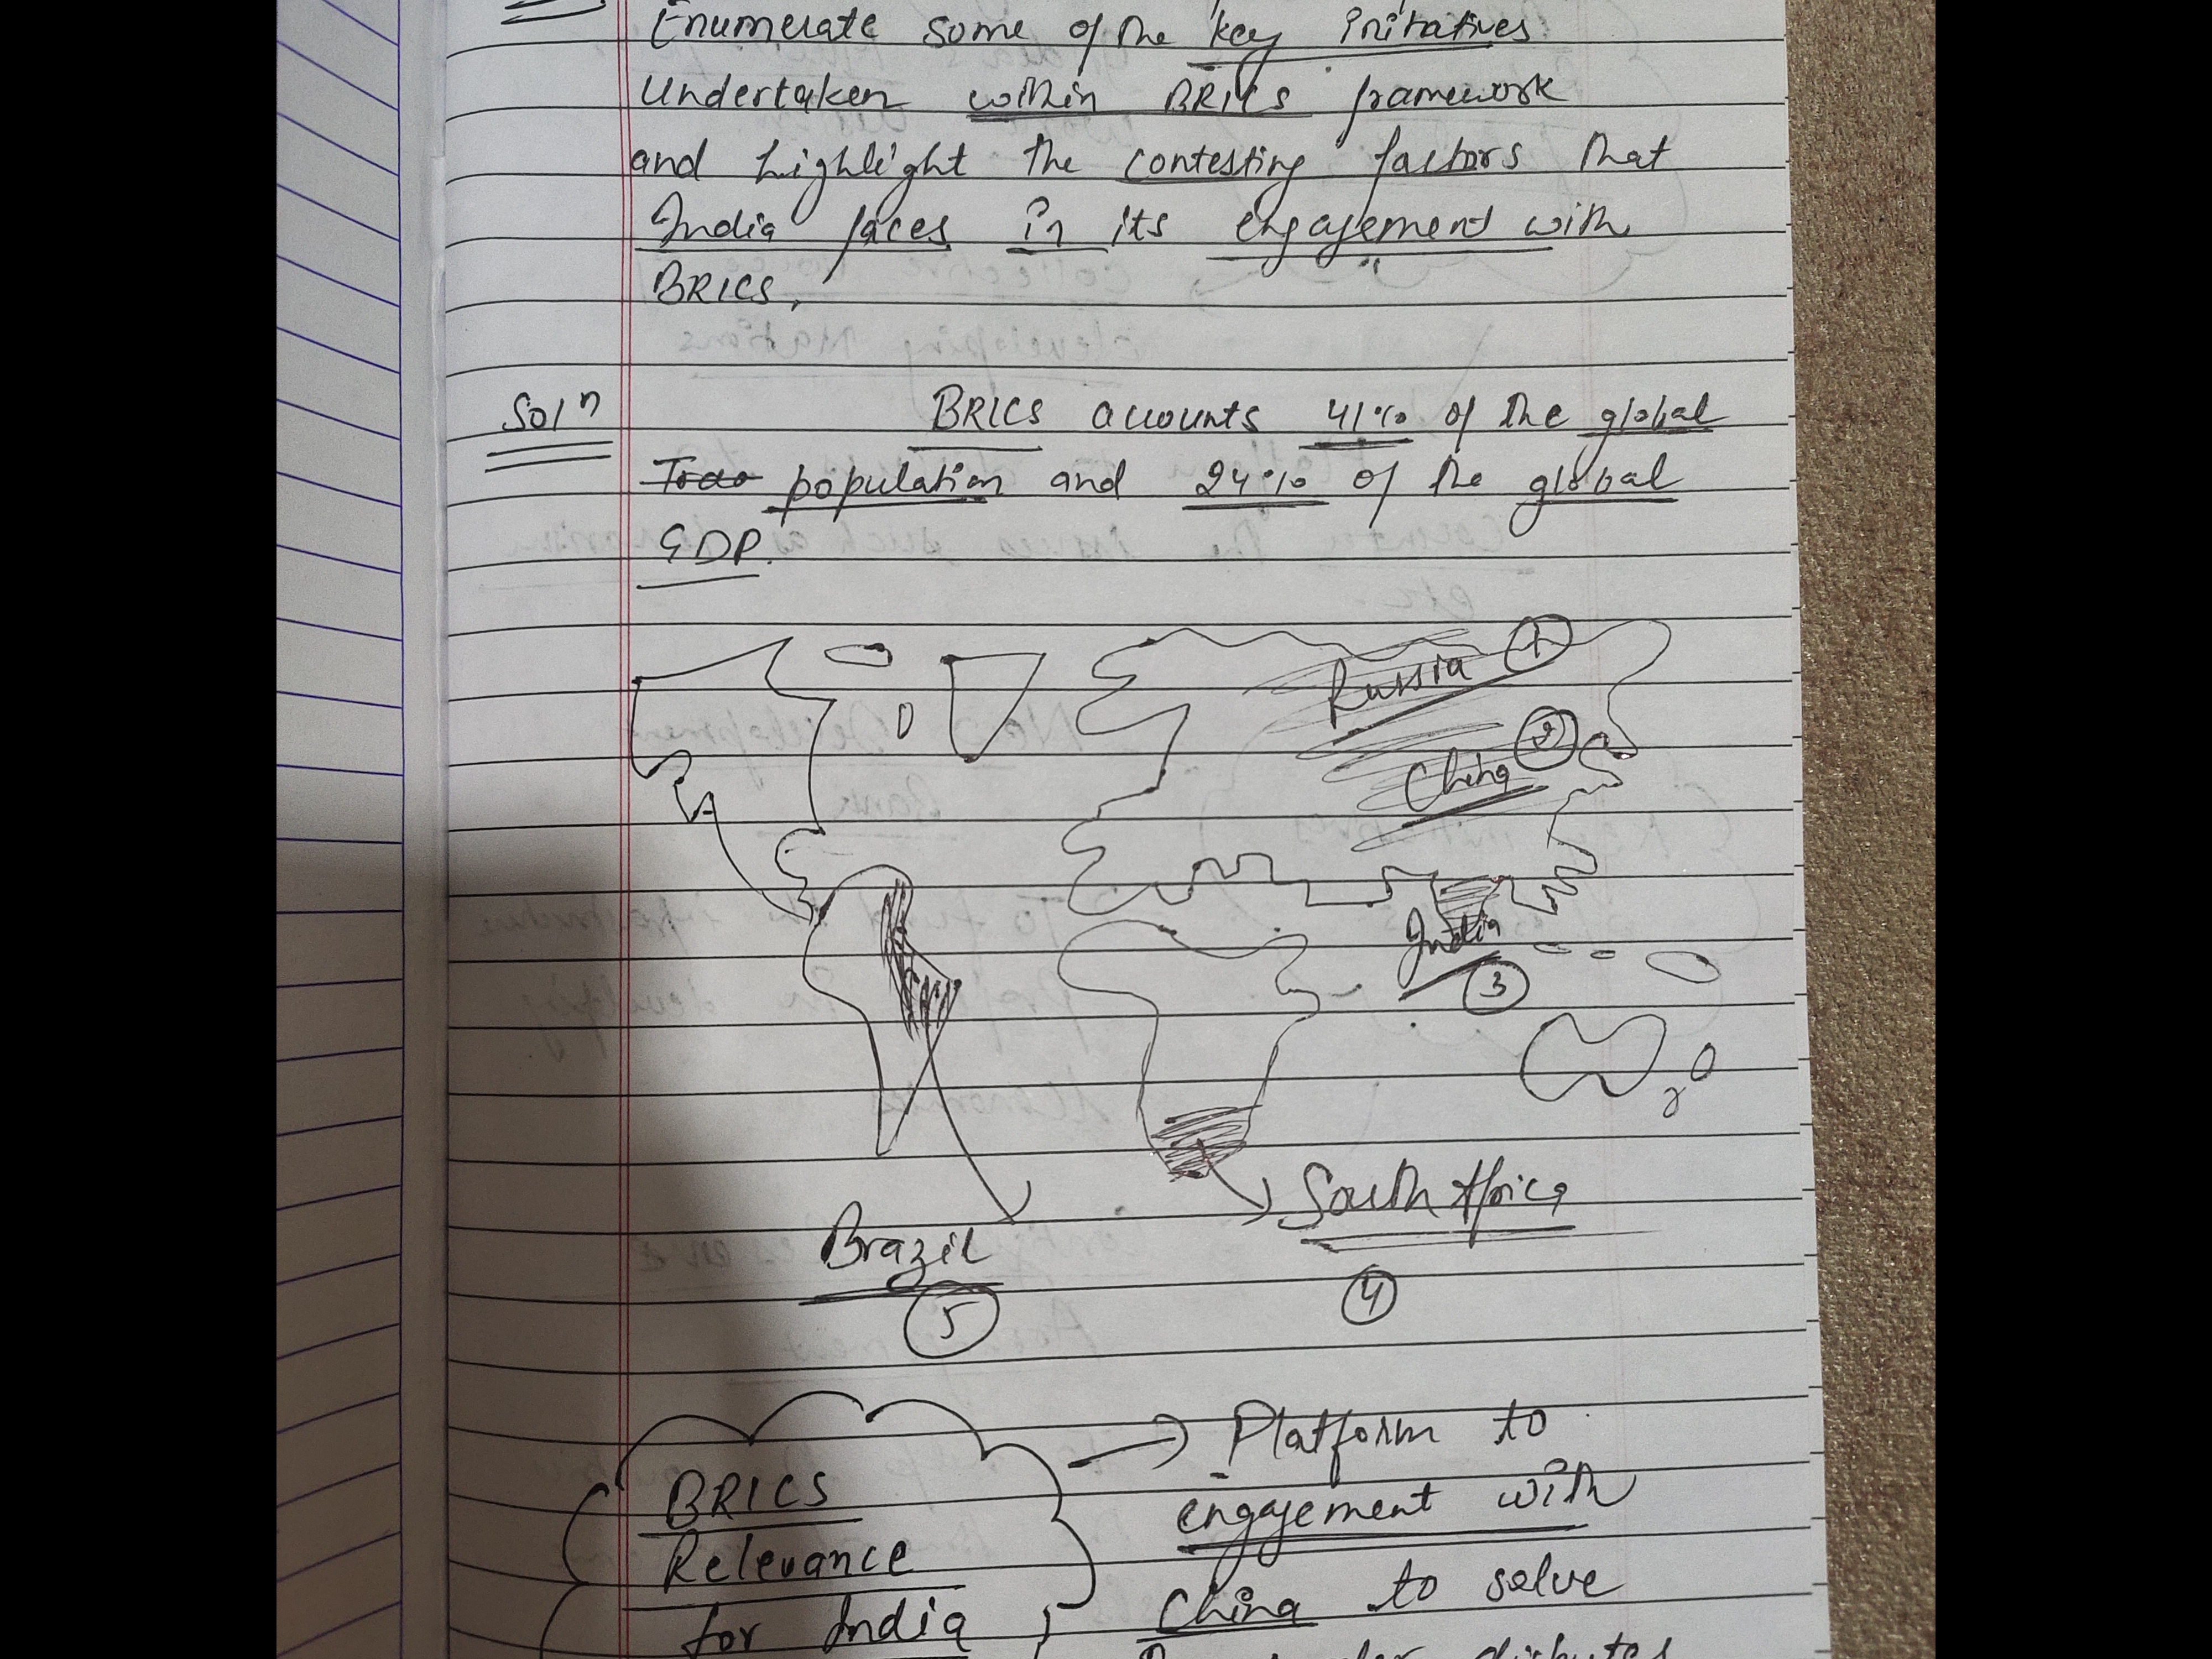 Enumerate some of the key initiatives
Undertaken within BRICS framework
and highlight the contesting factors that
India faces in its engagement with
BRICS.
Solⁿ BRICS accounts 41% of the global
population and 24% of the global
GDP.
Russia 1
China 2
India 3
South Africa
4
Brazil
5
BRICS
Relevance
for India
→ Platform to
engagement with
China to solve
disputes